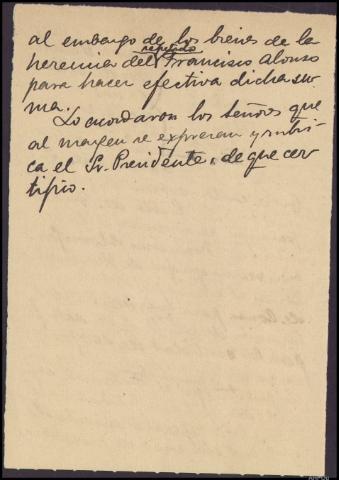 al embargo de los bienes de la
herencia del repetido Francisco Alonso
para hacer efectiva dicha su-
ma.
Lo acordaron los señores que
al margen se expresan y rubri-
ca el Sr. Presidente, de que cer-
tifico.